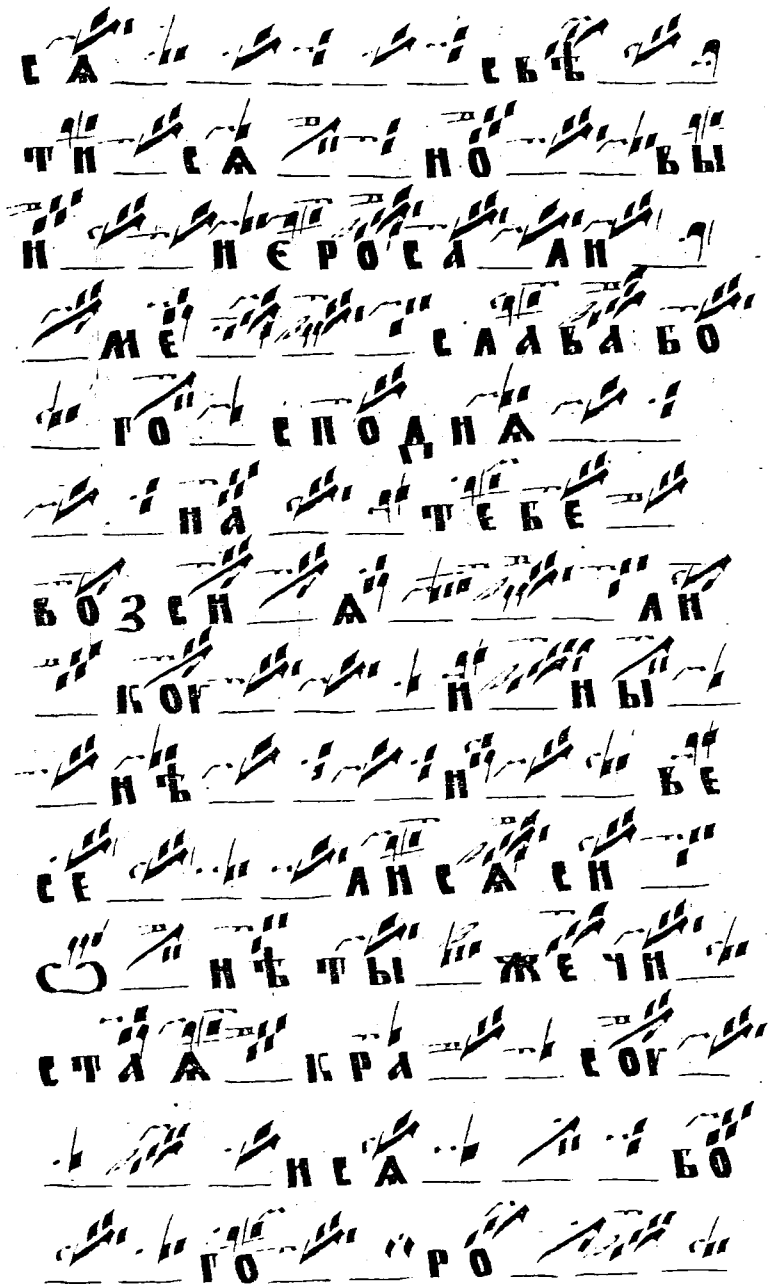 СѦ СВѢ
ТИ СѦ НО ВЫ
И ИЕРОСА ЛИ
МЕ СЛАВА БО
ГО СПОДНѦ
НА ТЕБЕ
ВОЗСИ Ѧ ЛИ
КОУ И И НЫ
НѢ И ВЕ
СЕ ЛИСѦ СИ
Ѡ НѢ ТЫ ЖЕ ЧИ
СТАѦ КРА СОУ
ИСѦ БО
ГО РО